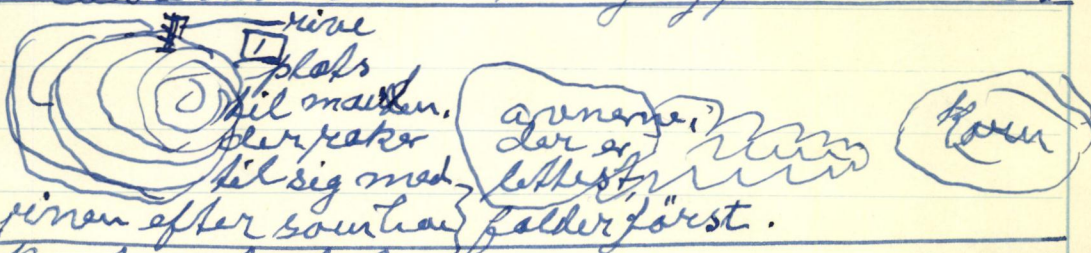 rive
plats
til manden.
der raker
til sig med
riven efter som han
avnerne,
der er
lettest,
falder först.
Korn